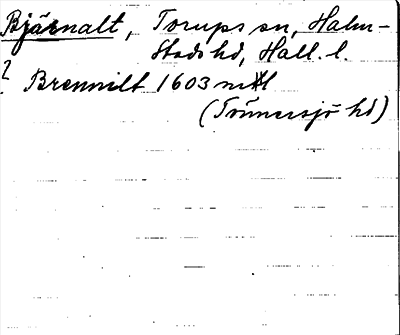 Bjärnalt, Torups sn, Halm-
stads hd, Hall. l.
? Brennilt 1603 mtl
(Tönnersjö hd)